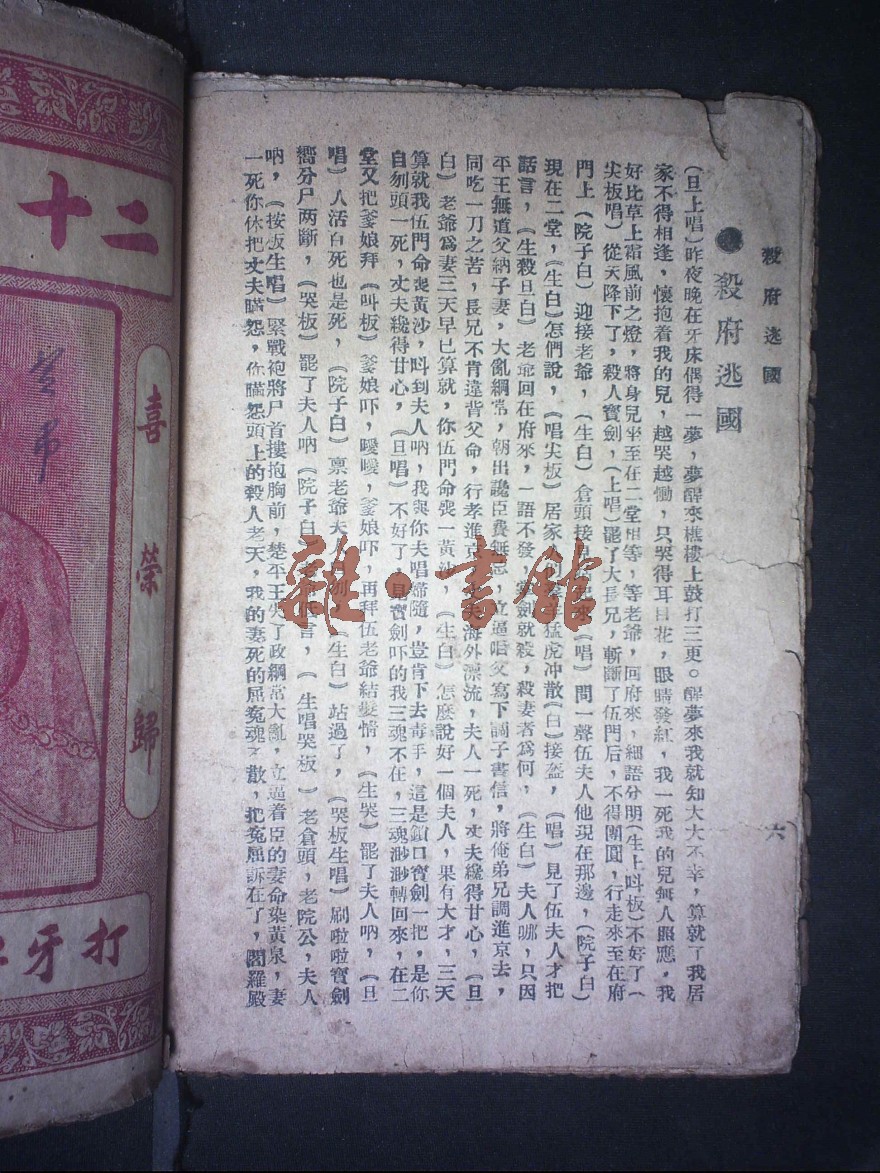 殺府逃國
六
殺府逃國
(旦上唱)昨夜晚在牙床偶得一夢，夢醒來樵樓上鼓打三更。醒夢來我就知大大不幸，算就了我居
家不得相逢，懷抱着我的兒，越哭越慟，只哭得耳目花，眼睛發紅，我一死我的兒無人照應，我
好比草上霜風前之燈，將身兒坐至在二堂相等，等老爺，回府來，細語分明(生上呌板)不好了(
尖板唱)從天降下了，殺人寳劍，(上唱)罷了大長兄，斬斷了伍門后，不得團圓，行走來至在府
門上(院子白)迎接老爺，(生白)倉頭接 來(唱)問一聲伍夫人他現在那邊，(院子白)
現在二堂，(生白)怎們說，(唱尖板)居家人 猛虎冲散(白)接盔，(唱)見了伍夫人才把
話言，(生殺旦白)老爺回在府來，一語不發， 劍就殺，殺妻者爲何，(生白)夫人哪，只因
平王無道父納子妻，大亂綱常，朝出讒臣費無忌，立逼咱父寫下調子書信，將俺弟兄調進京去，
同吃一刀之苦，長兄不肯違背父命，行孝進京， 夫海外漂流，夫人一死，丈夫纔得甘心，(旦
白)老爺爲妻三天早已算就，你伍門命喪黃沙，(生白)怎麽說好一個夫人，果有大才，三天
算就我伍門命喪黃沙，呌到夫人吶，我與你夫唱婦隨，豈肯下去毒手，這是鎖口寳劍一把，是你
自刎頭一死，丈夫纔得甘心，(旦唱)不好了，見寳劍吓的我三魂不在，三魂渺渺轉回來，在二
堂又把爹娘拜(叫板)爹娘吓，噯噯，爹娘吓，再拜伍老爺結髮情，(生哭)罷了夫人吶，(旦
唱)人活百死也是死，(院子白)禀老爺夫人 刎(生白)站過了，(哭板生唱)刷啦啦寳劍
嚮分尸两斷，(哭板)罷了夫人吶(院子白) 言，(生唱哭板)老倉頭，老院公，夫人
吶，(按板生唱)緊戰袍將尸首摟抱胸前，楚平王失了政綱常大亂，立逼着臣的妻命染黃泉，妻
一死你休把丈夫瞞怨，你瞞怨頭上的殺人老天，我的妻死的屈寃魂不散，把寃屈訴在了，閻羅殿
雜·書館
二十
喜榮歸
打牙